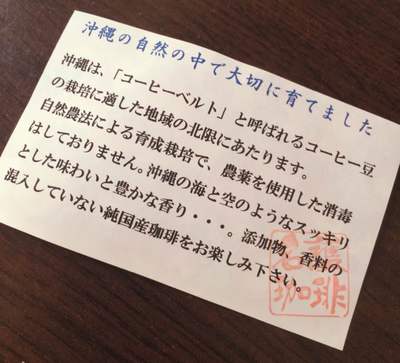 沖縄の自然の中で大切に育てました
沖縄は、「コーヒーベルト」と呼ばれるコーヒー豆
の栽培に適した地域の北限にあたります。
自然農法による育成栽培で、農薬を使用した消毒
はしておりません。沖縄の海と空のようなスッキリ
とした味わいと豊かな香り・・・。添加物、香料の
混入していない純国産珈琲をお楽しみ下さい。
名護
珈琲